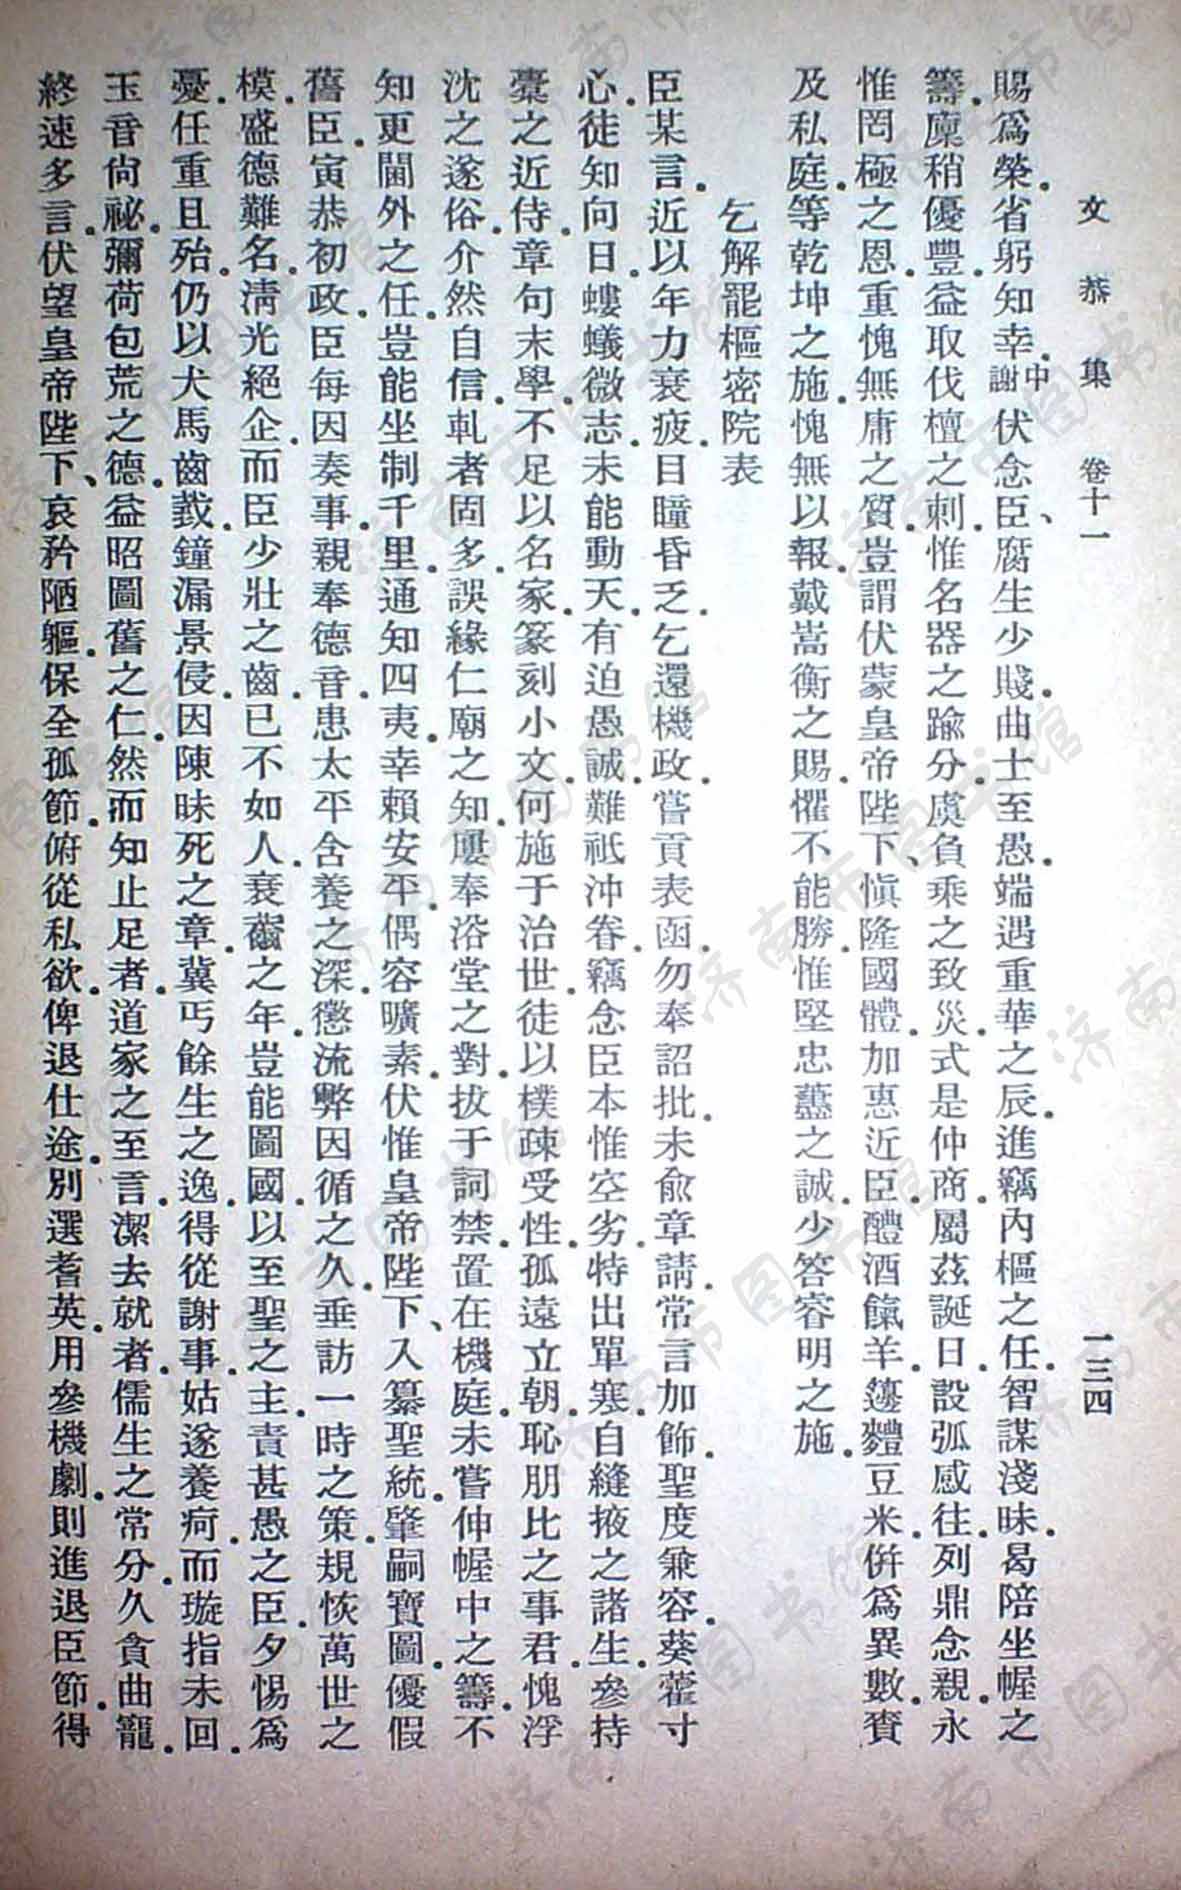 文恭集 卷十一 一三四
賜爲榮。省躬知幸。中謝伏念臣、腐生少賤。曲士至愚。端遇重華之辰。進竊內樞之任。智謀淺昧。曷陪坐幄之
籌。廩稍優豐。益取伐檀之刺。惟名器之踰分。虞負乘之致災。式是仲商。屬茲誕日。設弧感往。列鼎念親。永
惟罔極之恩。重愧無庸之質。豈謂伏蒙皇帝陛下、愼隆國體。加惠近臣。醴酒餼羊。籩麷豆米。倂爲異數。賚
及私庭。等乾坤之施。愧無以報。戴嵩衡之賜。懼不能勝。惟堅忠藎之誠。少答睿明之施。
乞解罷樞密院表
臣某言。近以年力衰疲。目瞳昏乏。乞還機政。嘗貢表函。勿奉詔批。未兪章請。常言加飾。聖度兼容。葵藿寸
心。徒知向日。螻蟻微志。未能動天。有迫愚誠。難祇沖眷。竊念臣本惟空劣。特出單寒。自縫掖之諸生。參持
橐之近侍。章句末學。不足以名家。篆刻小文。何施于治世。徒以樸疎受性。孤遠立朝。恥朋比之事君。愧浮
沈之遂俗。介然自信。軋者固多。誤緣仁廟之知。屢奉浴堂之對。拔于詞禁。置在機庭。未嘗伸幄中之籌。不
知更閫外之任。豈能坐制千里。通知四夷。幸賴安平。偶容曠素。伏惟皇帝陛下、入纂聖統。肇嗣寶圖。優假
舊臣。寅恭初政。臣每因奏事。親奉德音。患太平含養之深。懲流弊因循之久。垂訪一時之策。規恢萬世之
模。盛德難名。淸光絕企。而臣少壯之齒。已不如人。衰薾之年。豈能圖國。以至聖之主。責甚愚之臣。夕惕爲
憂。任重且殆。仍以犬馬齒戳。鐘漏景侵。因陳昧死之章。冀丐餘生之逸。得從謝事。姑遂養疴。而璇指未回。
玉音尙祕。彌荷包荒之德。益昭圖舊之仁。然而知止足者。道家之至言。潔去就者。儒生之常分。久貪曲寵。
終速多言。伏望皇帝陛下、哀矜陋軀。保全孤節。俯從私欲。俾退仕途。別選耆英。用參機劇。則進退臣節。得